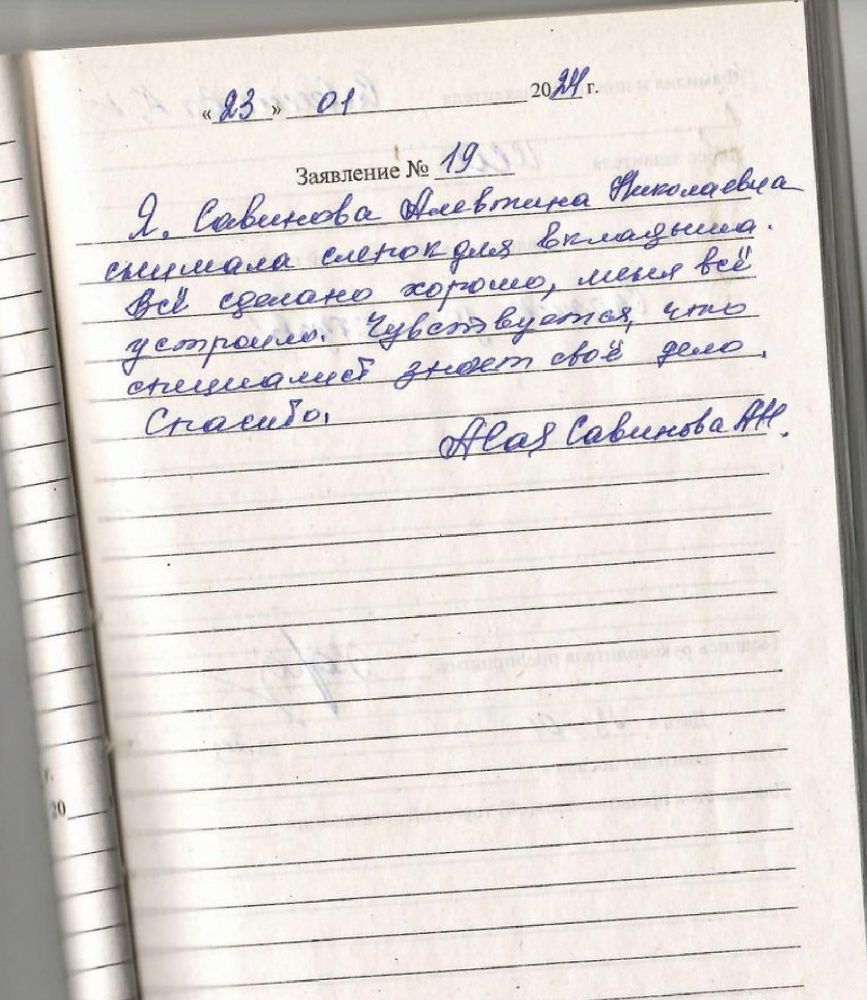 «23» 01 2024 г.
Заявление № 19
Я, Савинова Алевтина Николаевна
снимала слепок для вкладыша.
Всё сделано хорошо, меня всё
устроило. Чувствуется, что
специалист знает своё дело.
Спасибо.
Савинова АН.
20